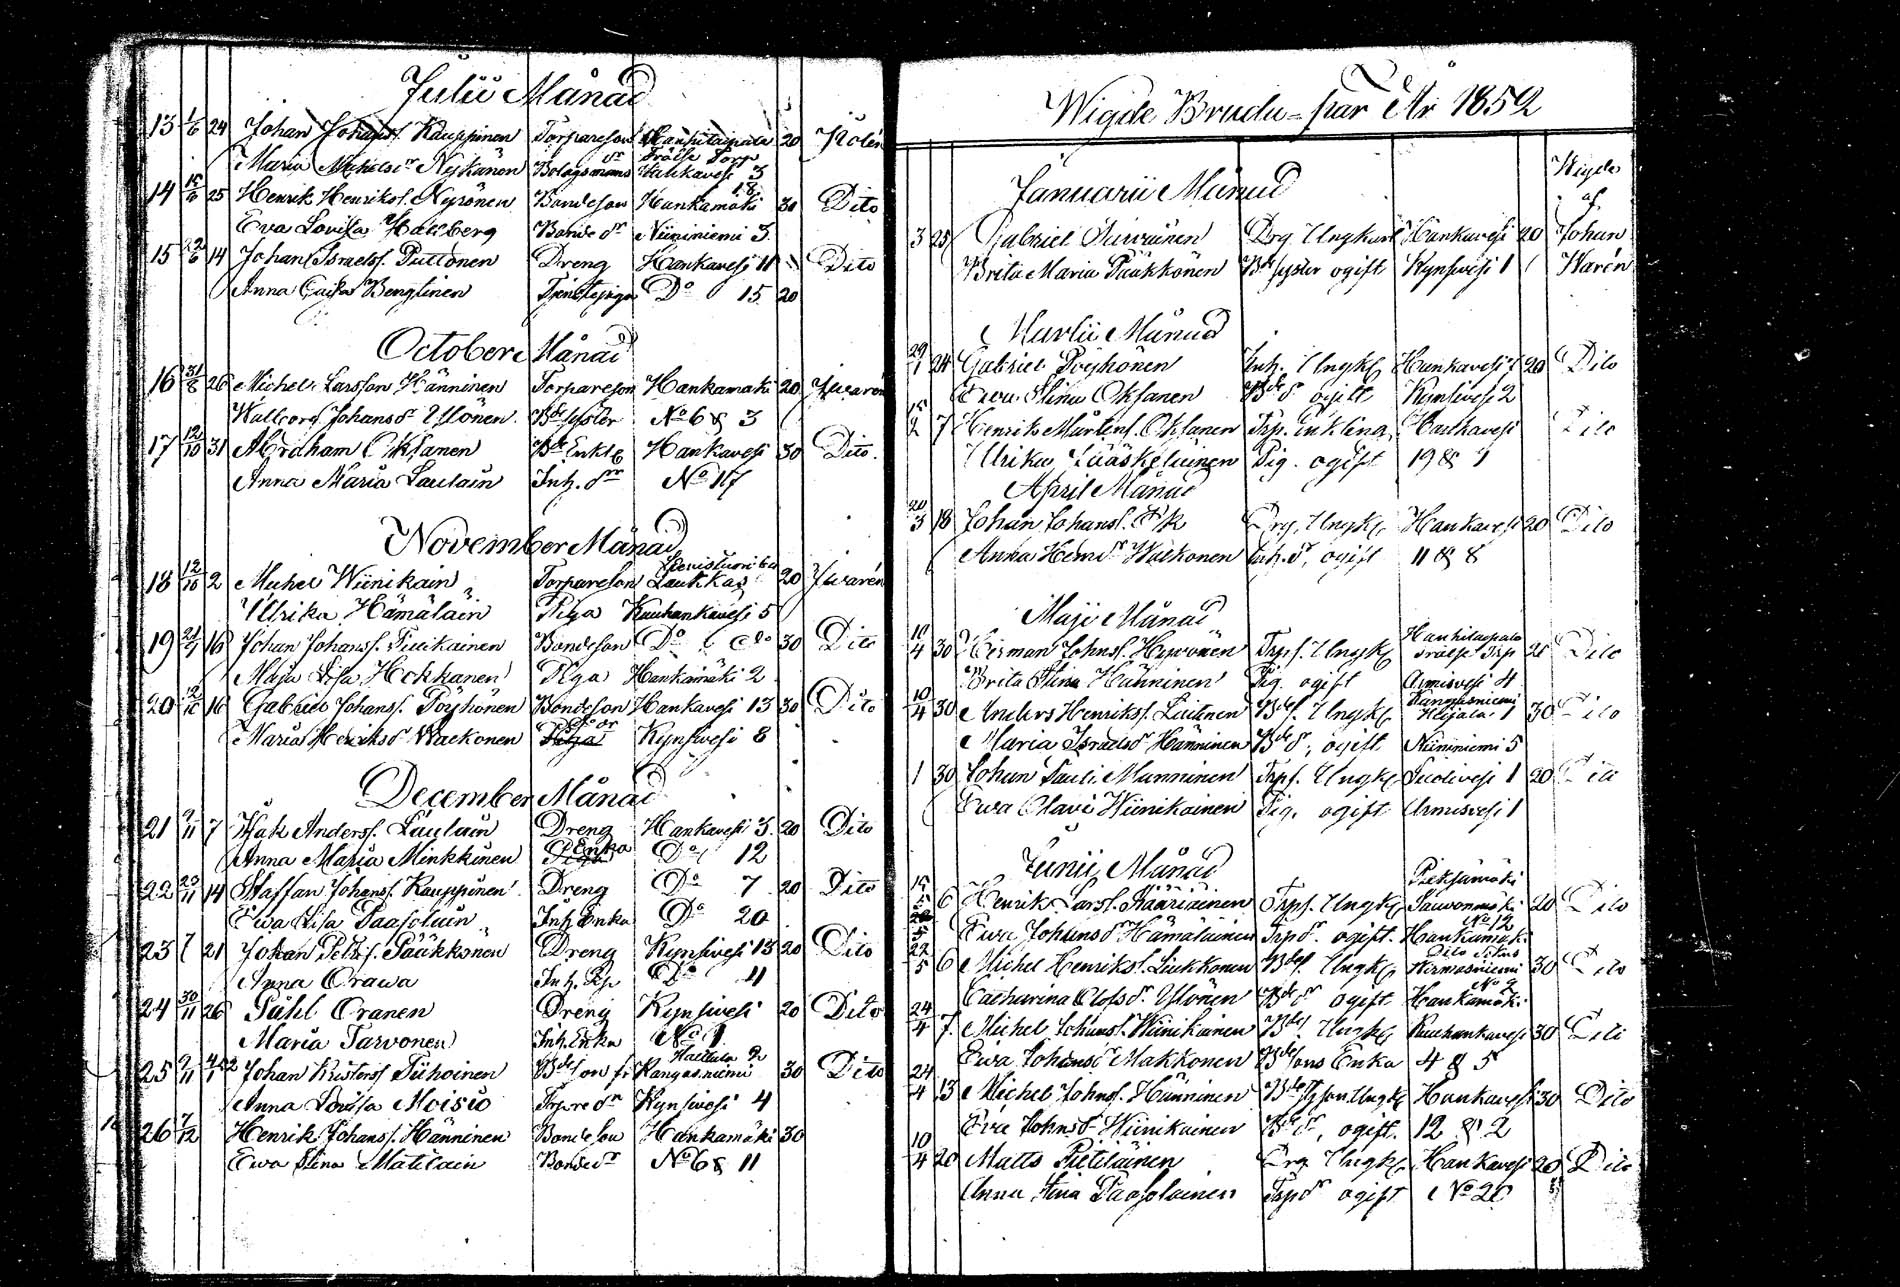 Julii Månad
13 1/6 24 Johan Johanss. Kauppinen Torpareson Hanhitaipale 20 Kolen
Frälse Torp
Maria Michelsdr Nykänen Bolagsmans dr Hankavesi 3
14 15/6 25 Henrik Henrikss. Nyrönen Bondeson Hankamäki 18 30 Dito
Eva Lovisa Hallberg Bonde dr Niininiemi 3
15 22/6 14 Johan Israelss. Puttonen Dreng Hankavesi 11 Dito
Anna Caisa Bengtinen Tjenstepiga Do 15 20
October Månad
16 31/8 26 Michel Larsson Hänninen Torpareson Hankamäki 20 Iwarén
Wallborg Johansdr Ylönen Bde syster No 6 & 3
17 12/10 31 Abraham Oksanen Bde Enkl. Hankavesi 30 Dito
Anna Maria Laulain Inh. dr No 17
November Månad
18 12/10 2 Michel Wiinikain Torpareson Laukkas 20 Iwarén
Ulrika Hämäläin Piga Kuuhankavesi 5
19 21/9 16 Johan Johanss. Tiukainen Bondeson Do do 30 Dito
Maja Lisa Hokkanen Piga Hankamäki 2
20 12/10 16 Gabriel Johanss. Pöyhönen Bondeson Hankavesi 13 30 Dito
Maria Henriksdr Waekonen Piga Kynsivesi 8
December Månad
21 9/11 7 Isak Anderss. Laulain Dreng Hankavesi 3 20 Dito
Anna Maria Minkkinen Piga Enka Do 12
22 23/11 14 Staffan Johanss. Kauppinen Dreng Do 7 20 Dito
Ewa Lisa Paasolain Inh. Enka Do 20
23 21 Johan Petterss. Pääkkönen Dreng Kynsivesi 13 20 Dito
Anna Orawa Inh. Do 4
24 30/11 26 Påhl Oranen Dreng Kynsivesi 20 Dito
Maria Tarvonen Inh. Enka No 1
25 9/11 Johan Kristerss. Tiihoinen Bdeson fr. Kangasniemi 30 Dito
Anna Lovisa Moisio Torpare dr Kynsivesi 4
26 7/12 Henrik Johanss. Hänninen Bondeson Hankamäki 30
Ewa Stina Matilain Bonde dr No 6 & 11
Wigde Brude-par År 1852
Wigde
af
Januarii Månad
3 25 Gabriel Drg Ungkarl Hankavesi 20 Johan
Brita Maria Pääkkönen Bde syster ogift Kynsivesi 1 Warén
Martii Månad
29/1 24 Gabriel Pöyhönen Inh. Ungk. Hankavesi 20 Dito
Ewa Stina Oksanen Bde dr ogift Kynsivesi 2
15/2 7 Henrik Mårtenss. Oksanen Trp. Enkling Hankavesi Dito
Ulrika Lääskeläinen Pig. ogift 19 & 1
April Månad
20/3 18 Johan Johanss. Drg. Ungk. Hankavesi 20 Dito
Anna Henrdr Waekonen Inh. dr, ogift 11 & 8
Maji Månad
10/4 30 Herman Johnss. Hyvönen Trps. Ungk. Hanhitaipale Frälse Trp 20 Dito
Brita Stina Hänninen Pig. ogift Armisvesi 4
10/4 30 Anders Henrikss. Laitinen Bdes. Ungk. Kangasniemi 1 30 Dito
Maria Israelsdr Hänninen Bde dr, ogift Niininiemi 5
1 30 Johan Pauli Manninen Trps. Ungk. Suolivesi 1 20 Dito
Ewa Olavi Wiinikainen Pig. ogift Armisvesi 1
Junii Månad
Pieksämäki
15/5 6 Henrik Larss. Kääriäinen Trps. Ungk. 20 Dito
Ewa Johansdr Hämäläinen Trp dr. ogift. Hankamäki No 12
22/5 6 Michel Henrikss. Liukkonen Bdes. Ungk. 30 Dito
Catharina Olofsdr. Ylönen Bde dr ogift Hankamäki No 2
24/4 7 Michel Johanss. Wiinikainen Bdes. Ungk. Kuuhankavesi 30 Dito
Ewa Johansdr Makkonen Bdesons Enka 4 & 5
24/4 13 Michel Johnss. Hänninen Ungk. Hankavesi 30 Dito
Eva Johnsdr Wiinikainen Bde dr, ogift. 12 & 2
10/4 20 Matts Pietiläinen Drg. Ungk. Hankavesi 20 Dito
Anna Stina Paasolainen Trp dr ogift No 20